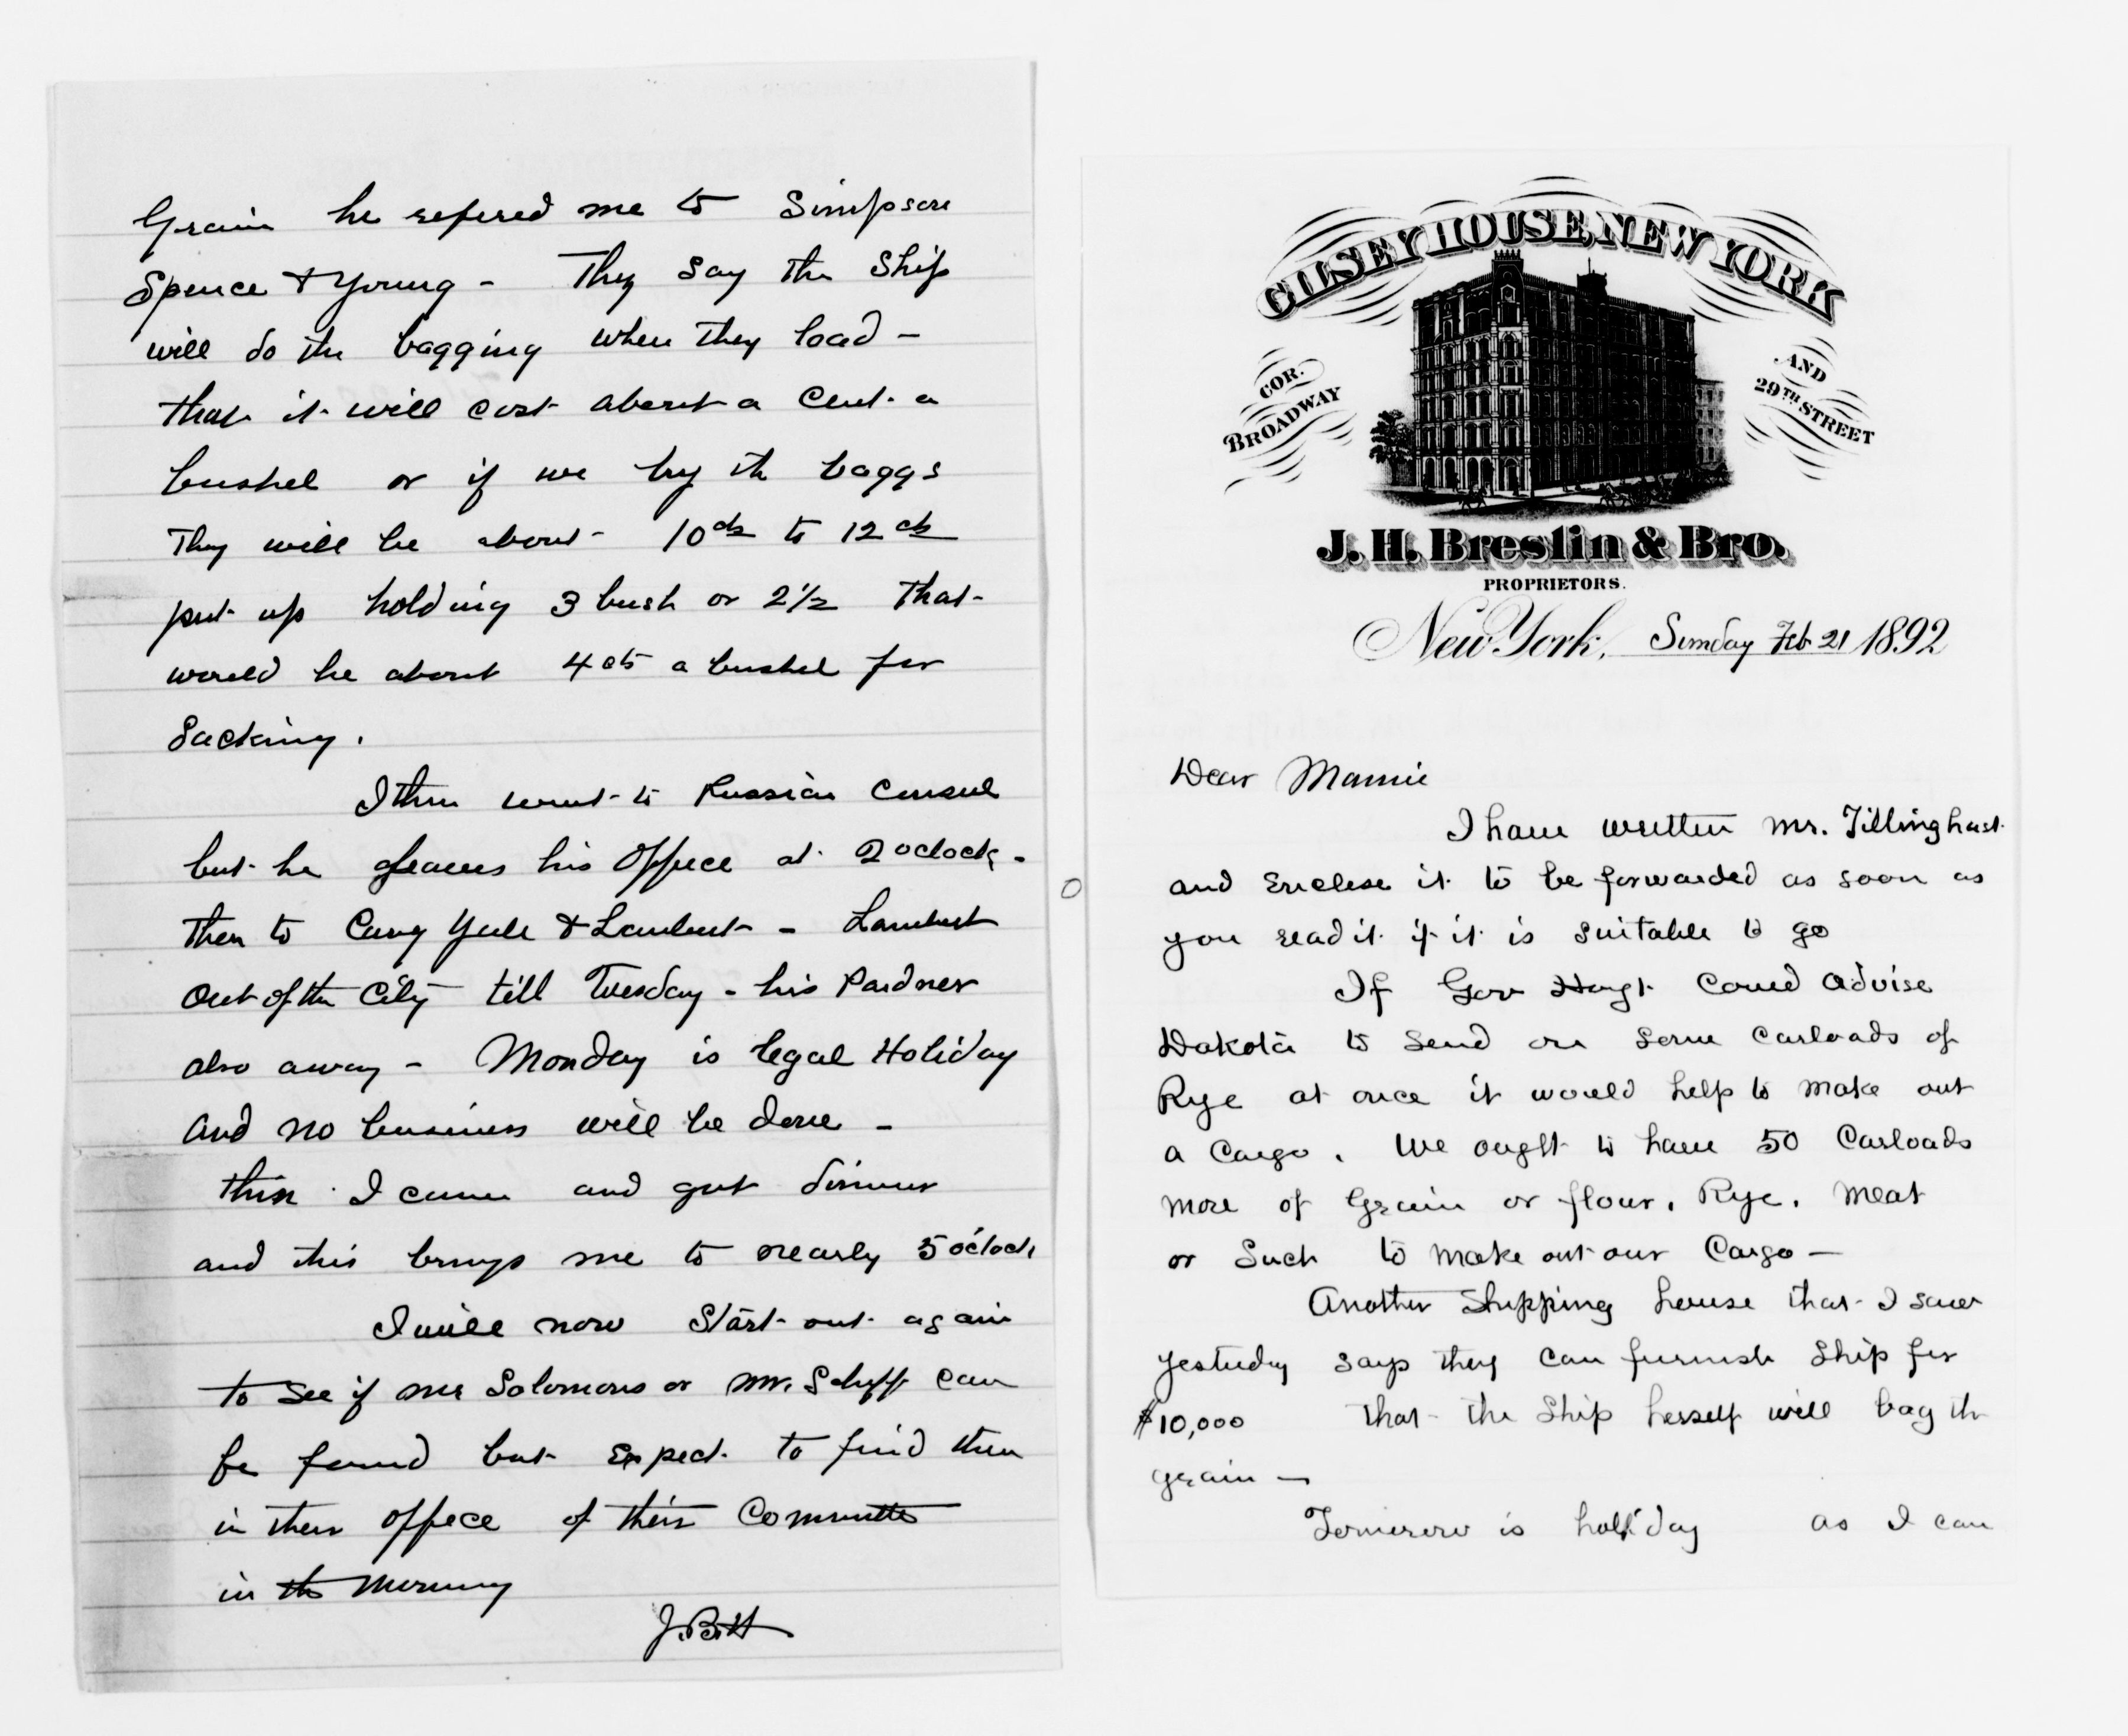 Grain he refered me to Simpson
Spence & Young - They say the Ship
will do the bagging when they load -
that it will cost about a Cent a
bushel or if we buy th baggs
They will be about 10cts to 12cts
put up holding 3 bush or 2½ That
would be about 4cts a bushel for
Sacking.
I then went to Russian Consul
but he leaves his Office at 2 oclock -
then to Carey Yale & Lambert - Lambert
out of the City till Tuesday - his Pardner
also away - Monday is legal Holiday
and no business will be done -
then I came and got dinner
and this brings me to nearly 5 o'clock
I will now Start out again
to see if Mr Solomons or Mr. Schiff can
be found but Expect to find them
in their office of their Committe
in the Morning
J.B.H
GILSEY HOUSE, NEW YORK
COR. BROADWAY
AND 29TH STREET
J. H. Breslin & Bro.
PROPRIETORS.
New York, Sunday Feb 21 1892
Dear Mamie
I have written Mr. Tillinghast
and Enclose it to be forwarded as soon as
you read it if it is suitable to go
If Gov Hoyt Could Advise
Dakota to Send on Some Carloads of
Rye at once it would help to make out
a Cargo. We ought to have 50 Carloads
more of Grain or flour, Rye, Meat
or Such to make out our Cargo -
Another Shipping house that I saw
yesterday says they can furnish Ship for
$10,000 that the Ship herself will bag th
grain -
Tomorow is holiday as I can